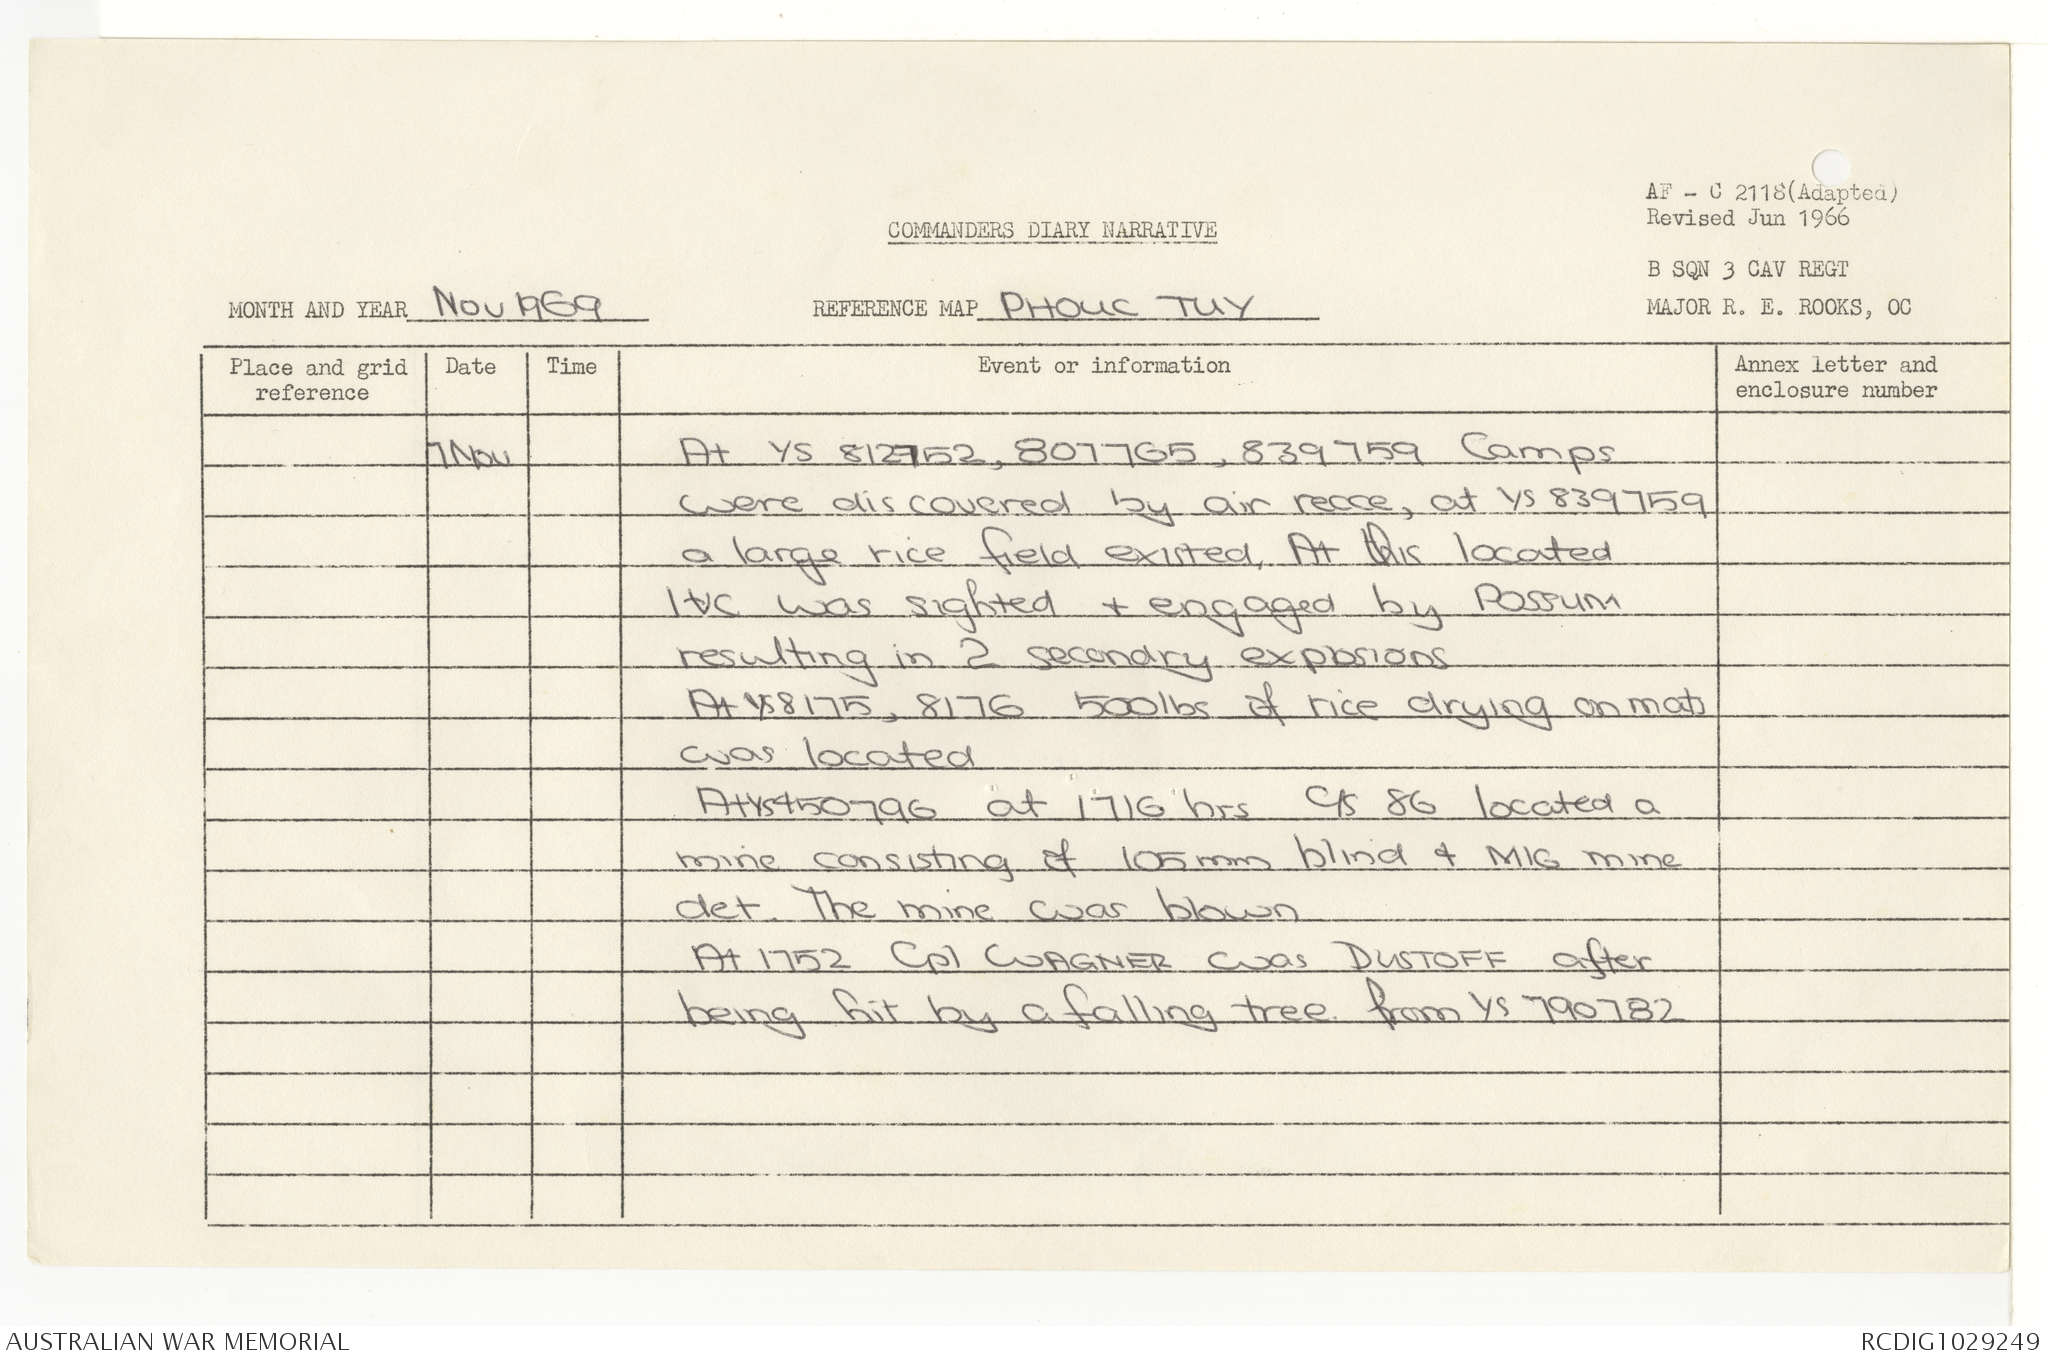 AF - C 2118(Adapted)
Revised Jun 1966
COMMANDERS DIARY NARRATIVE
B SQN 3 CAV REGT
MONTH AND YEAR Nov 1969 REFERENCE MAP PHOUC TUY MAJOR R. E. ROOKS, OC
Place and grid reference Date Time Event or information Annex letter and enclosure number
7 Nov At YS 812752, 807765, 839759 Camps
were discovered by air recce, at YS 839759
a large rice field existed, At this located
1 VC was sighted + engaged by POSSUM
resulting in 2 secondry explosions
At YS 8175, 8176 500lbs of rice drying on mats
was located
At YS 450796 at 1716 hrs C/s 86 located a
mine consisting of 105mm blind + M16 mine
det. The mine was blown
At 1752 Cpl WAGNER was DUSTOFF after
being hit by a falling tree from YS 790782
AUSTRALIAN WAR MEMORIAL RCDIG1029249